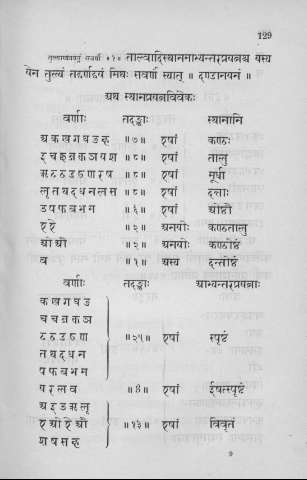 129
तुल्यास्यप्रयत्नं सवर्णं ॥१॥ ताल्वादिस्थानमाभ्यन्तरप्रयत्नश्च यस्य
येन तुल्यं तद्वर्णद्वयं मिथः सवर्णं स्यात् ॥ दण्डानयनं ॥
अथ स्थानप्रयत्नविवेकः
वर्णाः तदङ्काः स्थानानि
अ क ख ग घ ङ ह ॥७॥ एषां कण्ठः
इ च छ ज झ ञ य श ॥८॥ एषां तालु
ऋ ट ठ ड ढ ण र ष ॥८॥ एषां मूर्धा
लृ त थ द ध न ल स ॥८॥ एषां दन्ताः
उ प फ ब भ म ॥६॥ एषां ओष्ठौ
ए ऐ ॥२॥ अनयोः कण्ठतालु
ओ औ ॥२॥ अनयोः कण्ठोष्ठं
व ॥१॥ अस्य दन्तोष्ठं
वर्णाः तदङ्काः आभ्यन्तरप्रयत्नाः
क ख ग घ ङ
च छ ज झ ञ
ट ठ ड ढ ण ॥२५॥ एषां स्पृष्टं
त थ द ध न
प फ ब भ म
य र ल व ॥४॥ एषां ईषत्स्पृष्टं
अ इ उ ऋ लृ
ए ओ ऐ औ ॥१३॥ एषां विवृतं
श ष स ह